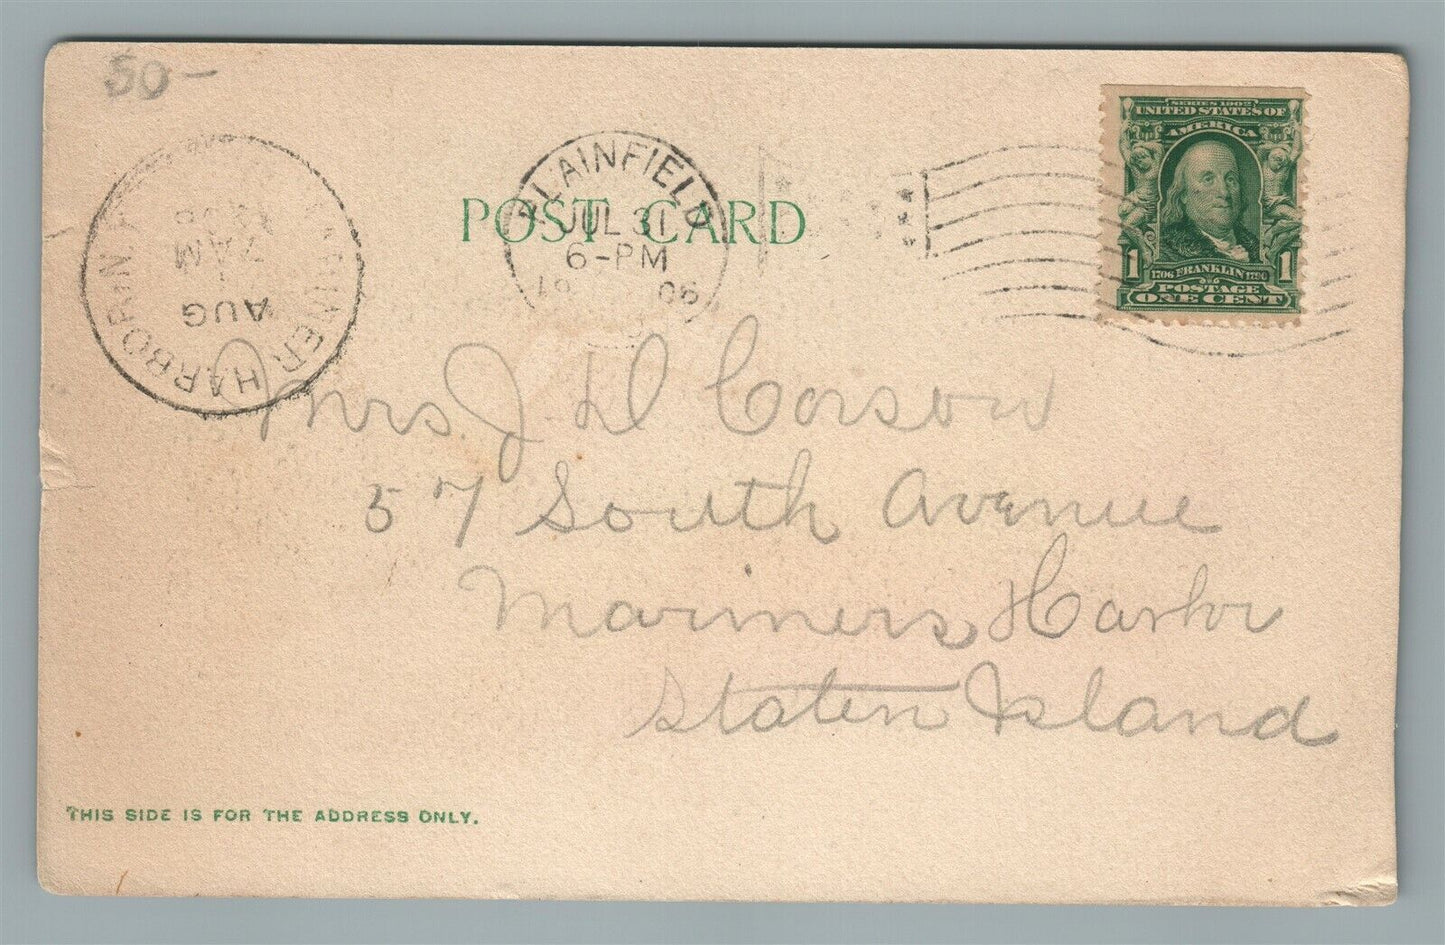 50-
PLAINFIELD
JUL 31
6-PM
19 06
POST CARD
SERIES 1902
UNITED STATES OF
AMERICA
1 1
1706 FRANKLIN 1790
POSTAGE
ONE CENT
MARINER HARBOR N.Y.
AUG
1
7 AM
Mrs. J D Corson
57 South Avenue
Mariners Harbor
Staten Island
THIS SIDE IS FOR THE ADDRESS ONLY.